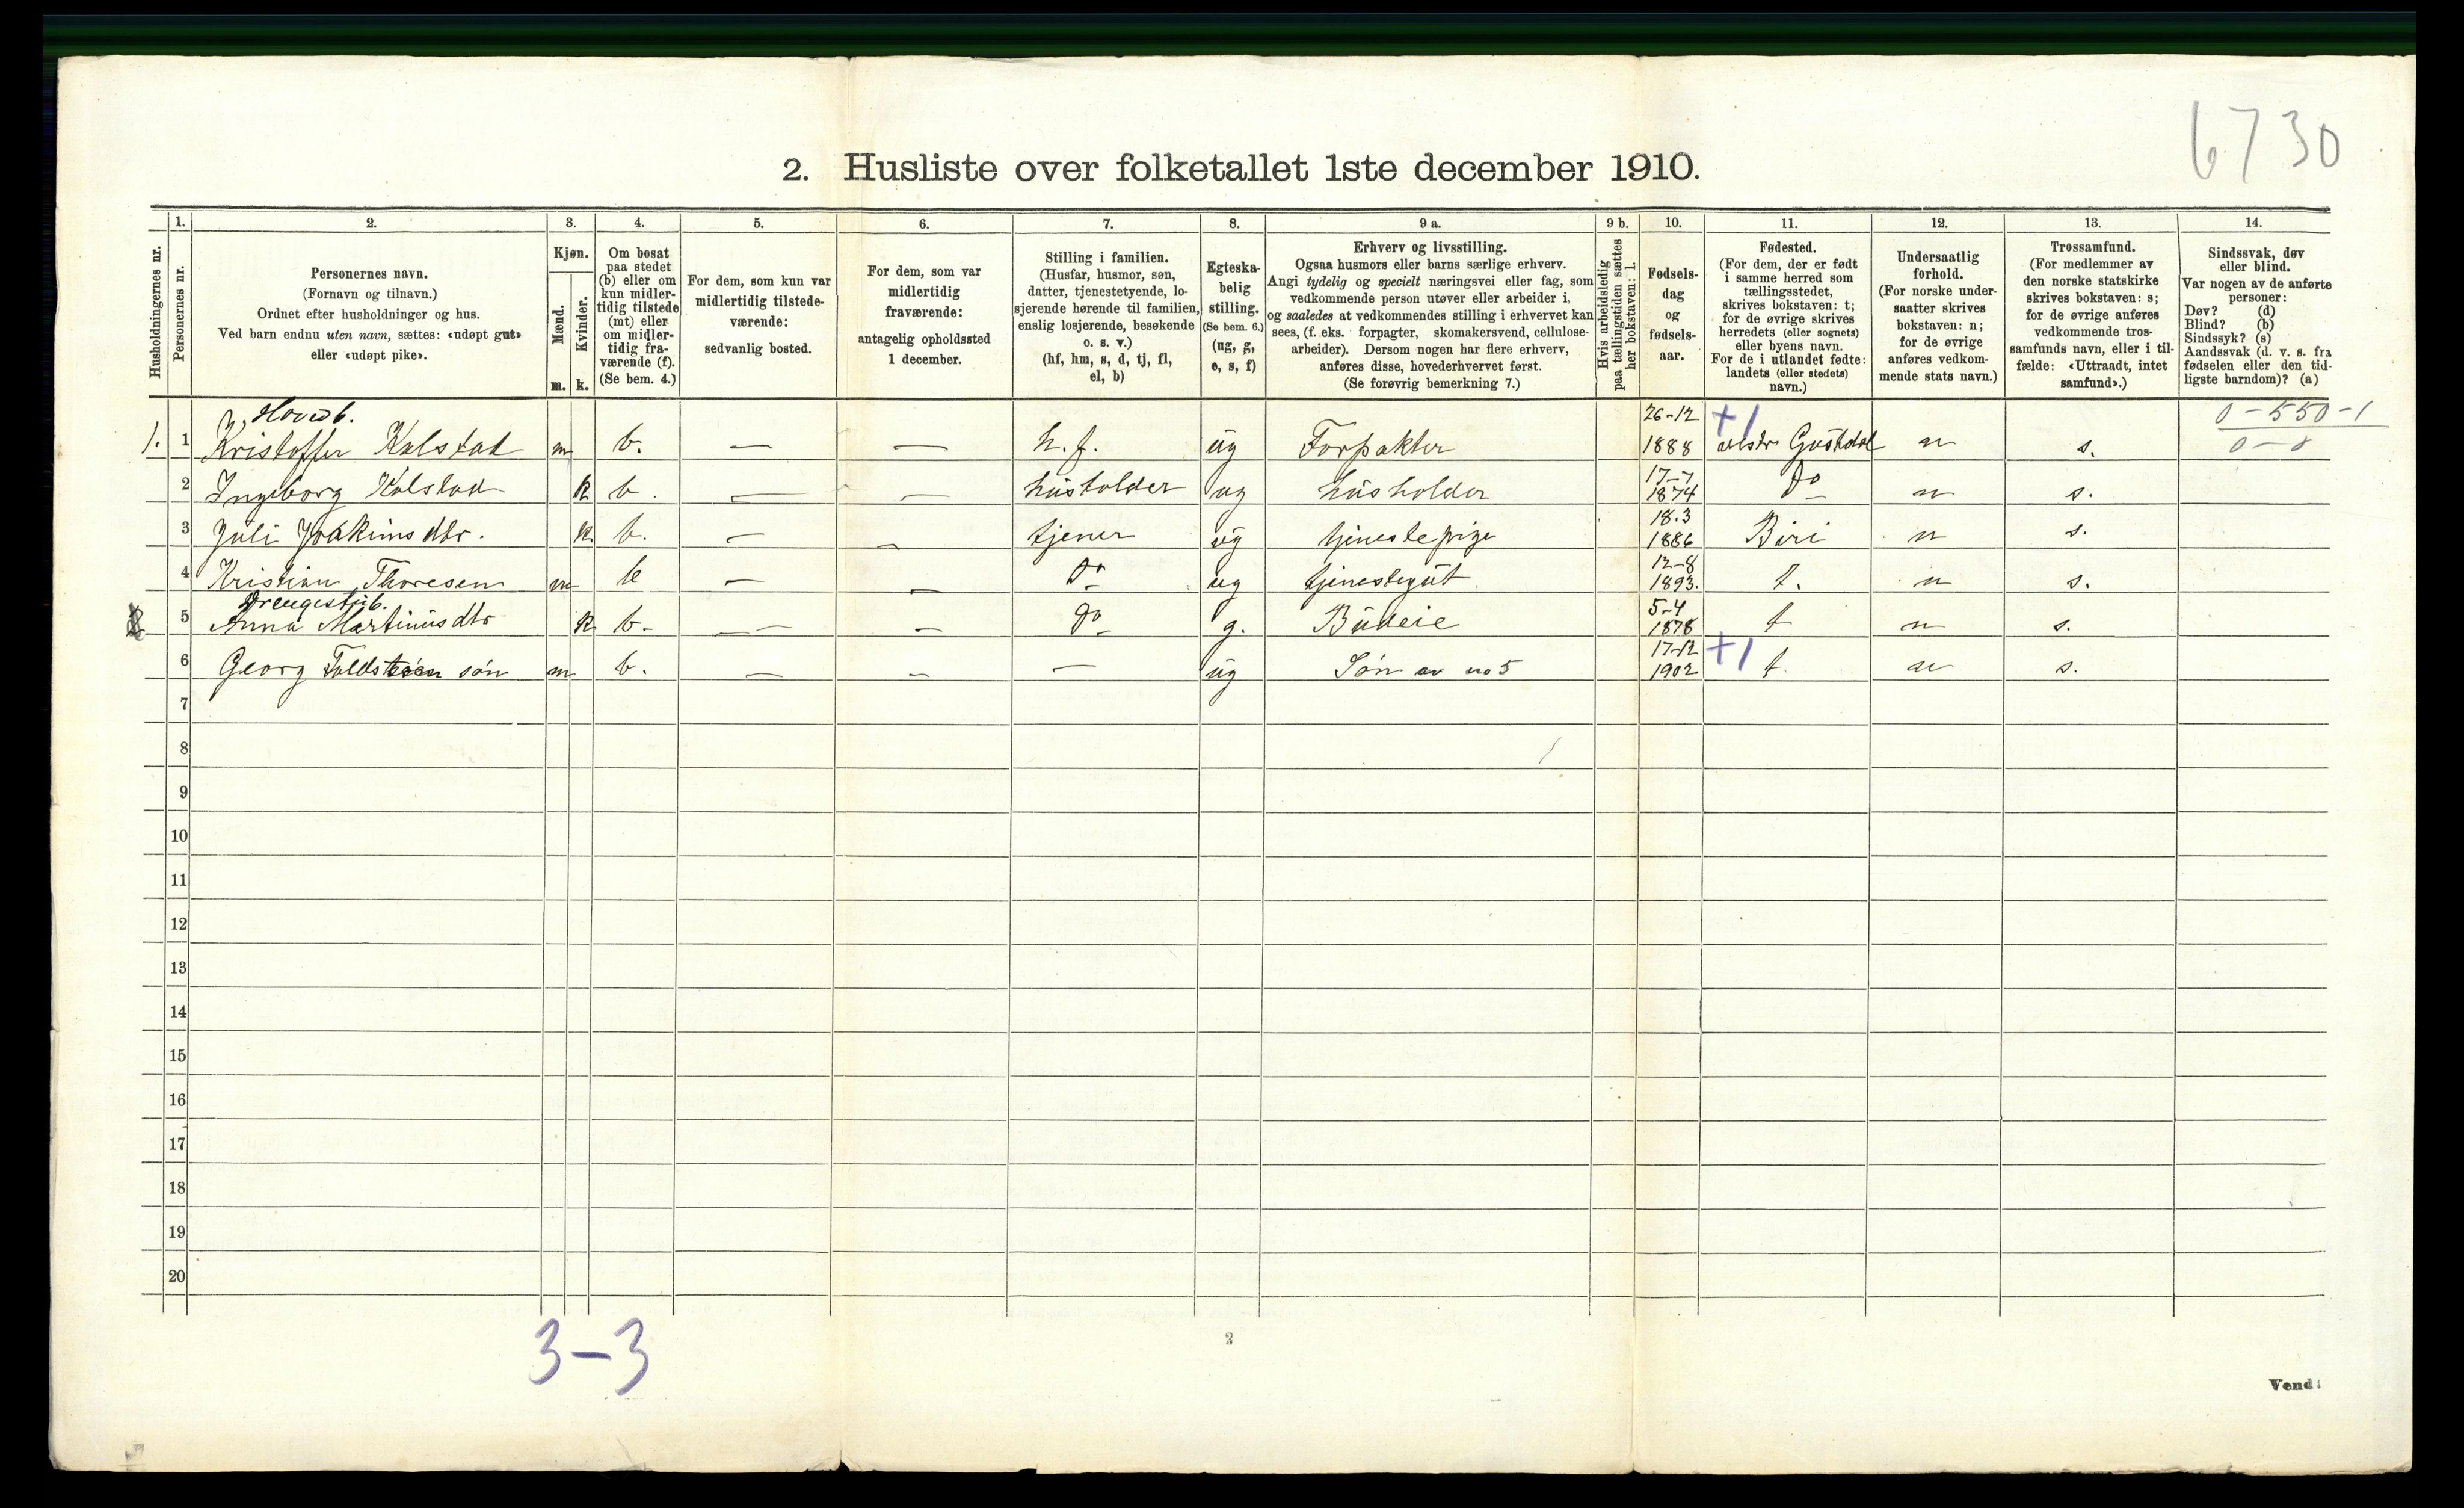 6730
2. Husliste over folketallet 1ste december 1910.
Husholdningernes nr.
1. Personernes nr.
2. Personernes navn.
(Fornavn og tilnavn.)
Ordnet efter husholdninger og hus.
Ved barn endnu uten navn, sættes: «udøpt gut»
eller «udøpt pike».
3. Kjøn.
Mænd. m.
Kvinder. k.
4. Om bosat
paa stedet
(b) eller om
kun midler-
tidig tilstede
(mt) eller
om midler-
tidig fra-
værende (f).
(Se bem. 4.)
5. For dem, som kun var
midlertidig tilstede-
værende:
sedvanlig bosted.
6. For dem, som var
midlertidig
fraværende:
antagelig opholdssted
1 december.
7. Stilling i familien.
(Husfar, husmor, søn,
datter, tjenestetyende, lo-
sjerende hørende til familien,
enslig losjerende, besøkende
o. s. v.)
(hf, hm, s, d, tj, fl,
el, b)
8. Egteska-
belig
stilling.
(Se bem. 6.)
(ug, g,
e, s, f)
9 a. Erhverv og livsstilling.
Ogsaa husmors eller barns særlige erhverv.
Angi tydelig og specielt næringsvei eller fag, som
vedkommende person utøver eller arbeider i,
og saaledes at vedkommendes stilling i erhvervet kan
sees, (f. eks. forpagter, skomakersvend, cellulose-
arbeider). Dersom nogen har flere erhverv,
anføres disse, hovederhvervet først.
(Se forøvrig bemerkning 7.)
9 b. Hvis arbeidsledig
paa tællingstiden sættes
her bokstaven: l.
10. Fødsels-
dag
og
fødsels-
aar.
11. Fødested.
(For dem, der er født
i samme herred som
tællingsstedet,
skrives bokstaven: t;
for de øvrige skrives
herredets (eller sognets)
eller byens navn.
For de i utlandet fødte:
landets (eller stedets)
navn.)
12. Undersaatlig
forhold.
(For norske under-
saatter skrives
bokstaven: n;
for de øvrige
anføres vedkom-
mende stats navn.)
13. Trossamfund.
(For medlemmer av
den norske statskirke
skrives bokstaven: s;
for de øvrige anføres
vedkommende tros-
samfunds navn, eller i til-
fælde: «Uttraadt, intet
samfund».)
14. Sindssvak, døv
eller blind.
Var nogen av de anførte
personer:
Døv? (d)
Blind? (b)
Sindssyk? (s)
Aandssvak (d. v. s. fra
fødselen eller den tid-
ligste barndom)? (a)
Hovedb. 26-12 +1 0-550-1
1. 1 Kristoffer Kolstad m b. — — h.f. ug Forpakter 1888 vestr Gausdal n s. 0-0
2 Ingeborg Kolstad k b. — — husholder ug husholder 17-7 1874 Do n s.
3 Juli Joakimsdtr. k b. — — tjener ug tjenestepige 18.3 1886 Biri n s.
4 Kristian Thoresen m b — — Do ug tjenestegut 12-8 1893. t. n s.
Drengestub.
5 Anna Martinusdtr k b- — — Do g. Budeie 5-4 1878 t n s.
6 Georg søn m b. — — — ug Søn av no 5 17-12 1902 +1 t n s.
7
8
9
10
11
12
13
14
15
16
17
18
19
20
3-3
2
Vend!